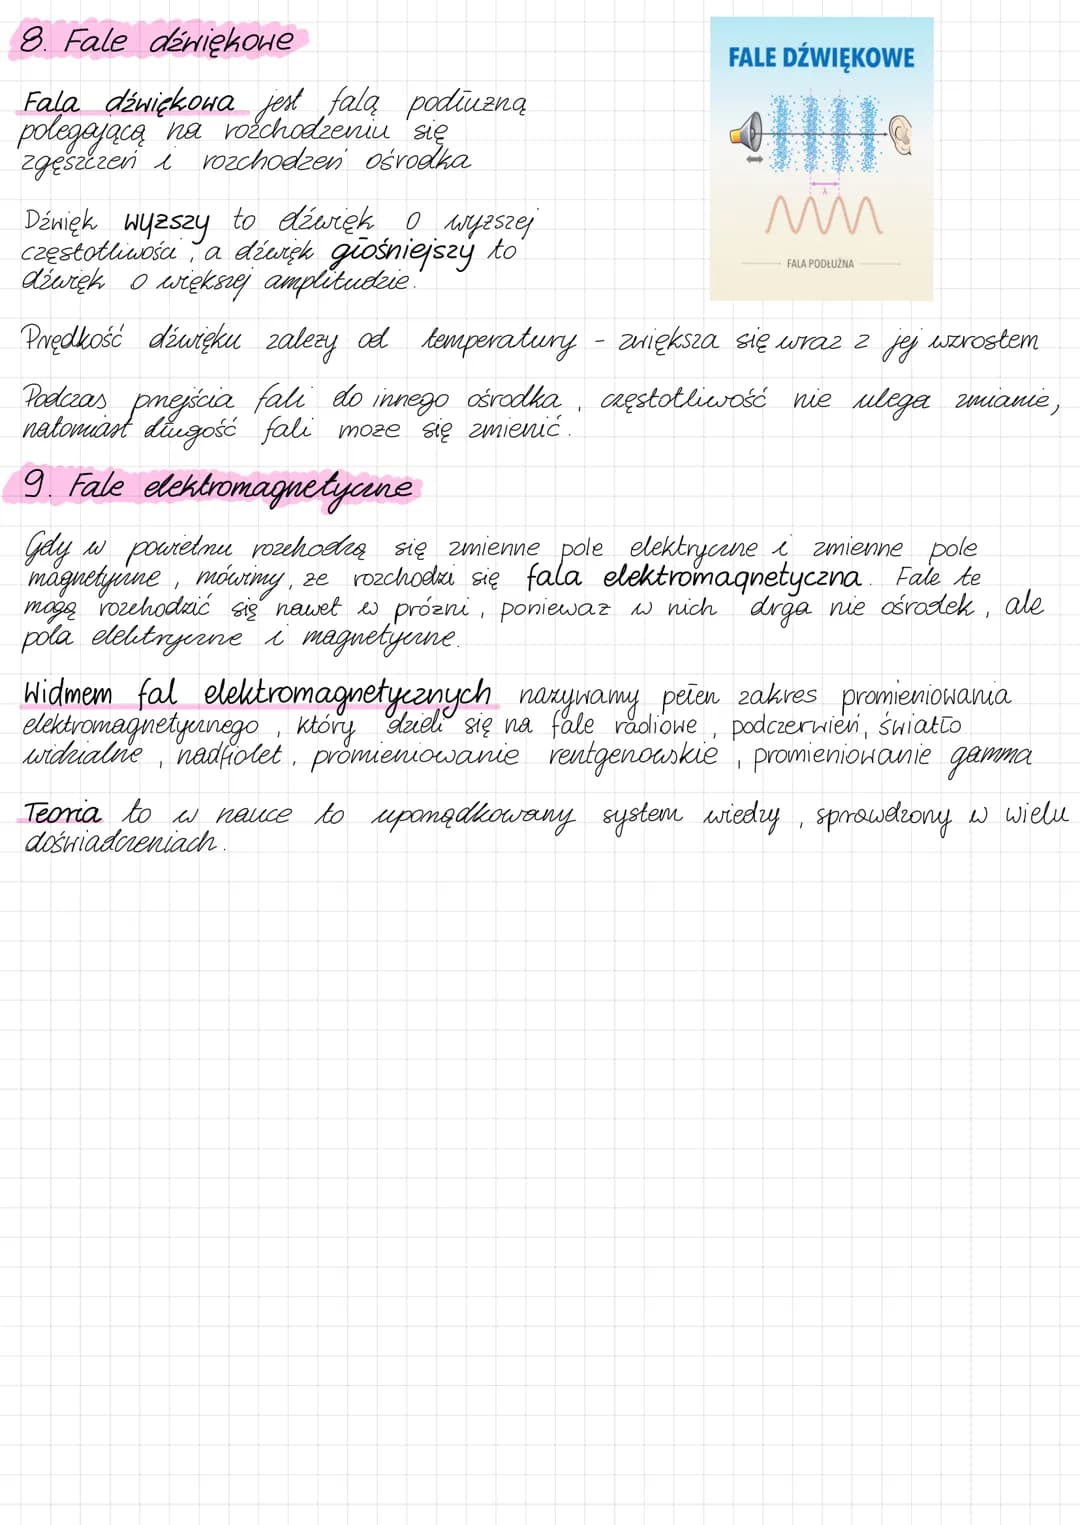 8. Fale dźwiękowe
Fala dźwiękowa jest falą podłużną
polegającą na rozchodzeniu się
zgęszczeń i rozchodzeń ośrodka
Dźwięk wyższy to dźwięk o wyższej
częstotliwości, a dźwięk głośniejszy to
dźwięk o większej amplitudzie.
FALE DŹWIĘKOWE
λ
FALA PODŁUŻNA
Prędkość dźwięku zależy od temperatury - zwiększa się wraz z jej wzrostem
Podczas przejścia fali do innego ośrodka, częstotliwość nie ulega zmianie,
natomiast długość fali może się zmienić.
9. Fale elektromagnetyczne
Gdy w powietrzu rozchodzą się zmienne pole elektryczne i zmienne pole
magnetyczne, mówimy, że rozchodzi się fala elektromagnetyczna. Fale te
mogą rozchodzić się nawet w próżni, ponieważ w nich drga nie ośrodek, ale
pola elektryczne i magnetyczne.
Widmem fal elektromagnetycznych nazywamy pełen zakres promieniowania
elektromagnetycznego, który dzieli się na fale radiowe, podczerwień, światło
widzialne, nadfiolet, promieniowanie rentgenowskie, promieniowanie gamma
Teoria to w nauce to uporządkowany system wiedzy, sprawdzony w wielu
doświadczeniach.